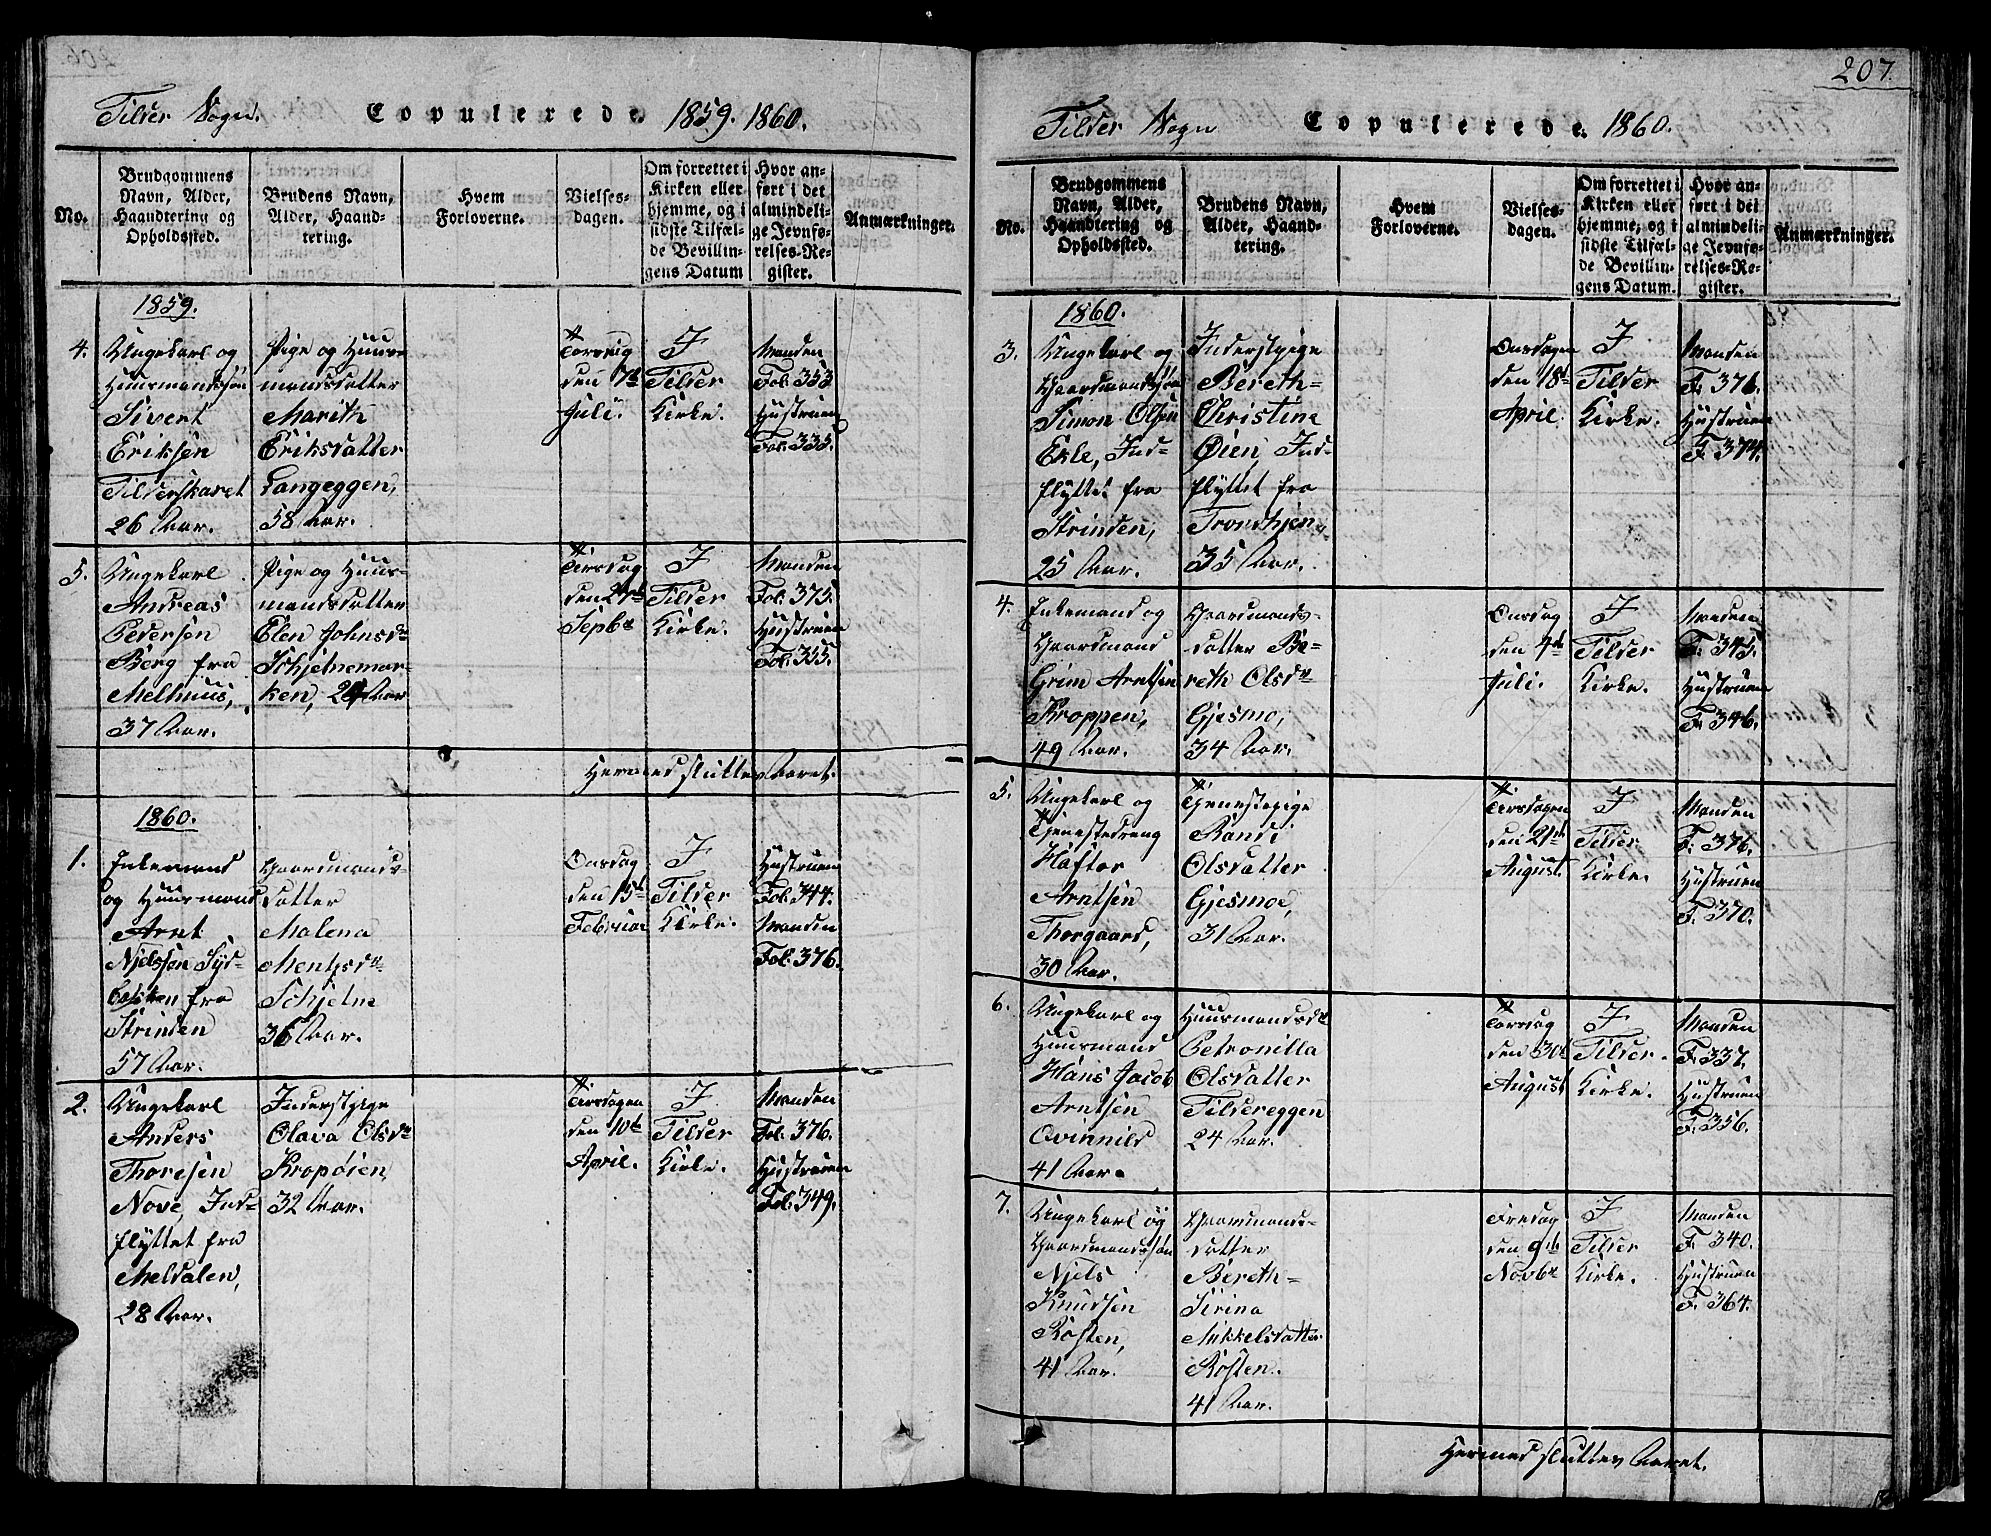 Tilder Sogn. Copulerede. 1859. 1860.
No.
Brudgommens Navn, Alder, Haandtering og Opholdssted.
Brudens Navn, Alder, Haandtering.
Hvem Forloverne.
Vielsesdagen.
Om forrettet i Kirken eller hjemme, og i sidste Tilfælde Bevillingens Datum
Hvor anført i det almindelige Jevnførelses-Register.
Anmærkninger.
1859.
4.
Ungekarl og
Huusmandssøn
Sivert
Eriksen
Tilderskaret
26 Aar.
Pige og Huus-
mandsdatter
Marith
Eriksdatter
Langeggen,
58 Aar.
Torsdag
den 7de
Juli.
I
Tilder
Kirke.
Manden
Fol. 353.
Hustruen
Fol. 335.
5.
Ungekarl
Andreas
Pedersen
Berg fra
Melhuus,
37 Aar.
Pige og Huus-
mandsdatter
Elen Johnsdr
Schjelnemar-
ken, Aar
Tirsdag
den
Septbr
I
Tilder
Kirke.
Manden
Fol. 375.
Hustruen
Fol. 355.
Hermed slutter Aaret.
1860.
1.
Enkemand
og Huusmand
Arnt
Njelssen Syd-
fra
Strinden
57 Aar.
Gaardmands-
datter
Malena
Mentzsdr
Schjelne
36 Aar.
Onsdag
den 15de
Februar
I
Tilder
Kirke.
Hustruen
Fol. 344.
Manden
Fol. 376.
2.
Ungekarl
Anders
Thoresen
Nove, Ind-
flyttet fra
Meldalen,
28 Aar.
Inderstpige
Olava Olsdr
Kropøien,
32 Aar.
Tirsdagen
den 10de
April.
I
Tilder
Kirke.
Manden
Fol. 376.
Hustruen
Fol. 349.
207.
Tilder Sogn Copulerede. 1860.
No.
Brudgommens Navn, Alder, Haandtering og Opholdssted.
Brudens Navn, Alder, Haandtering.
Hvem Forloverne.
Vielsesdagen.
Om forrettet i Kirken eller hjemme, og i sidste Tilfælde Bevillingens Datum.
Hvor anført i det almindelige Jevnførelses-Register.
Anmærkninger.
1860.
3.
Ungekarl og
Gaardmandssøn
Simon Olsen
Ekle, Ind-
flyttet fra
Strinden,
25 Aar.
Inderstpige
Bereth-
Christine
Øien Ind-
flyttet fra
Trondhjem,
35 Aar.
Onsdagen
den 18de
April.
I
Tilder
Kirke.
Manden
F. 376.
Hustruen
F. 374.
4.
Enkemand og
Gaardmand
Grim Arntsen
Kroppen,
49 Aar.
Gaardmands-
datter Be-
reth Olsdr
Gjesmo,
34 Aar.
Onsdag
den 4de
Juli.
I
Tilder
Kirke.
Manden
F. 345.
Hustruen
F. 346.
5.
Ungekarl og
Tjenestedreng
Haftor
Arntsen
Thorgaard,
30 Aar.
Tjenestepige
Randi
Olsdatter
Gjesmoe,
31 Aar.
Tirsdagen
den 21de
August
I
Tilder
Kirke.
Manden
F. 376.
Hustruen
F. 370.
6.
Ungekarl og
Huusmand
Hans Jacob
Arntsen
Qvinnild
41 Aar.
Huusmandsdr
Petronilla
Olsdatter
Tildereggen
24 Aar.
Torsdag
den 30te
August
I
Tilder
Kirke.
Manden
F. 337.
Hustruen
F. 356.
7.
Ungekarl og
Gaardmandssøn
Njels
Knudsen
Røsten,
41 Aar.
Gaardmands-
datter
Bereth-
Sirina
Mikkelsdatter
Røsten.
41 Aar.
Fredag
den 9de
Novbr
I
Tilder
Kirke.
Manden
F. 340.
Hustruen
F. 364.
Hermed slutter Aaret.